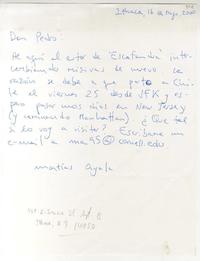 Ithaca, 16 de mayo 2000
Don Pedro:
He aquí el actor de "Escafandra" inter-
cambiando misivas de nuevo. La
razón se debe a que parto a Chi-
le el viernes 25 desde JFK y es-
pero pasar unos días en New Jersey
(y caminando Manhattan). ¿Qué tal
si lo voy a visitar? Escríbame un
e-mail a ma95@cornell.edu
matías ayala
Ithaca, NY 14850